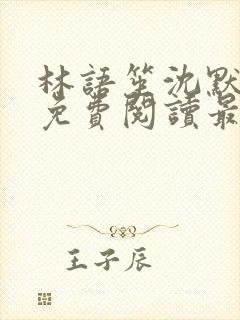 林語笙沈默
免費閱讀最
王子辰